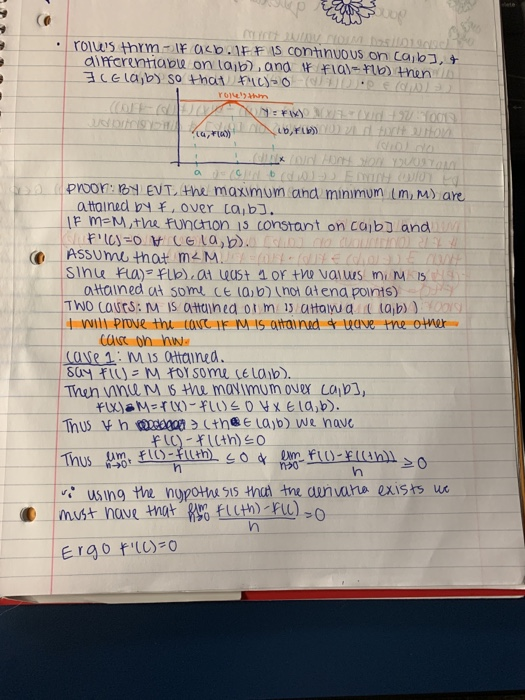 • rolle's thrm - If a<b. If F is continuous on [a,b], &
differentiable on (a,b), and if f(a)=f(b) then
∃ c∈(a,b) so that f'(c)=0
rolle's thm
y=f(x)
(a,f(a))
(b,f(b))
x
a
b
proof: By EVT, the maximum and minimum (m, M) are
attained by f, over [a,b].
If m=M, the function is constant on [a,b] and
f'(c)=0 ∀ c∈(a,b).
Assume that m<M.
Since f(a)=f(b), at least 1 of the values m, M is
attained at some c∈(a,b) (not at endpoints)
TWO cases: M is attained or m is attained (∈(a,b))
I will prove the case if M is attained & leave the other
case on hw.
Case 1: M is attained.
Say f(c) = M for some c∈(a,b).
Then since M is the maximum over [a,b],
f(x)-M=f(x)-f(c)≤0 ∀x∈(a,b).
Thus ∀ h ∋ c+h∈(a,b) we have
f(c)-f(c+h)≤0
Thus lim h→0⁺ f(c)-f(c+h)/h ≤0 & lim h→0⁻ f(c)-f(c+h)/h ≥0
∴ using the hypothesis that the derivative exists we
must have that lim h→0 f(c+h)-f(c)/h =0
Ergo f'(c)=0